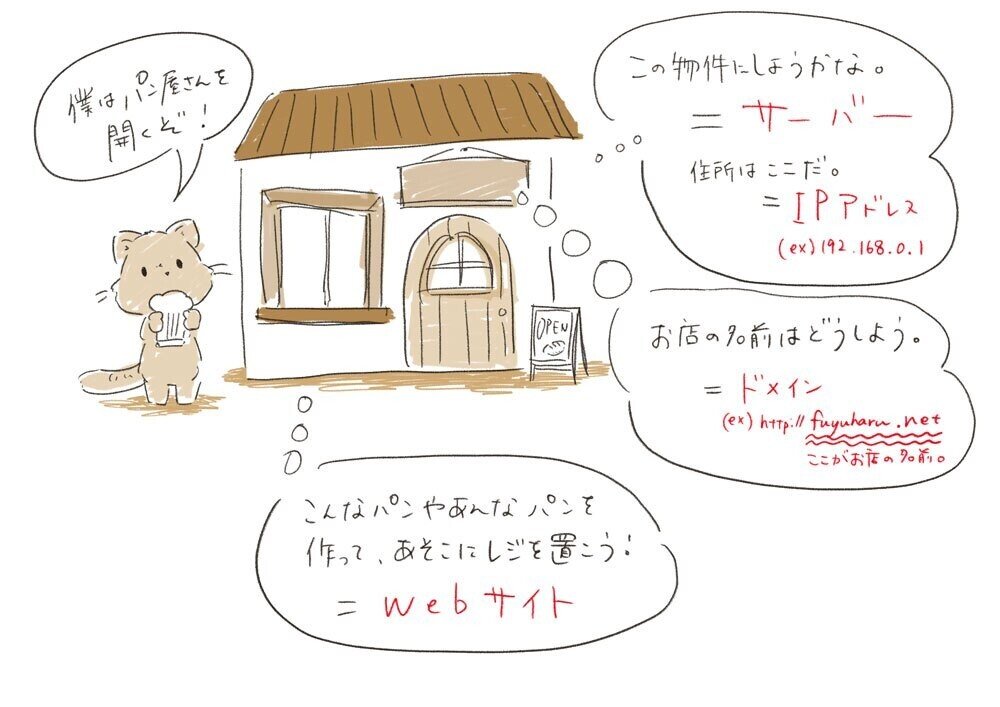 僕はパン屋さんを
開くぞ！
この物件にしようかな。
＝ サーバー
住所はここだ。
＝ IPアドレス
(ex) 192.168.0.1
OPEN
お店の名前はどうしよう。
＝ ドメイン
(ex) http://fuyuharu.net
ここがお店の名前。
こんなパンやあんなパンを
作って、あそこにレジを置こう！
＝ Webサイト